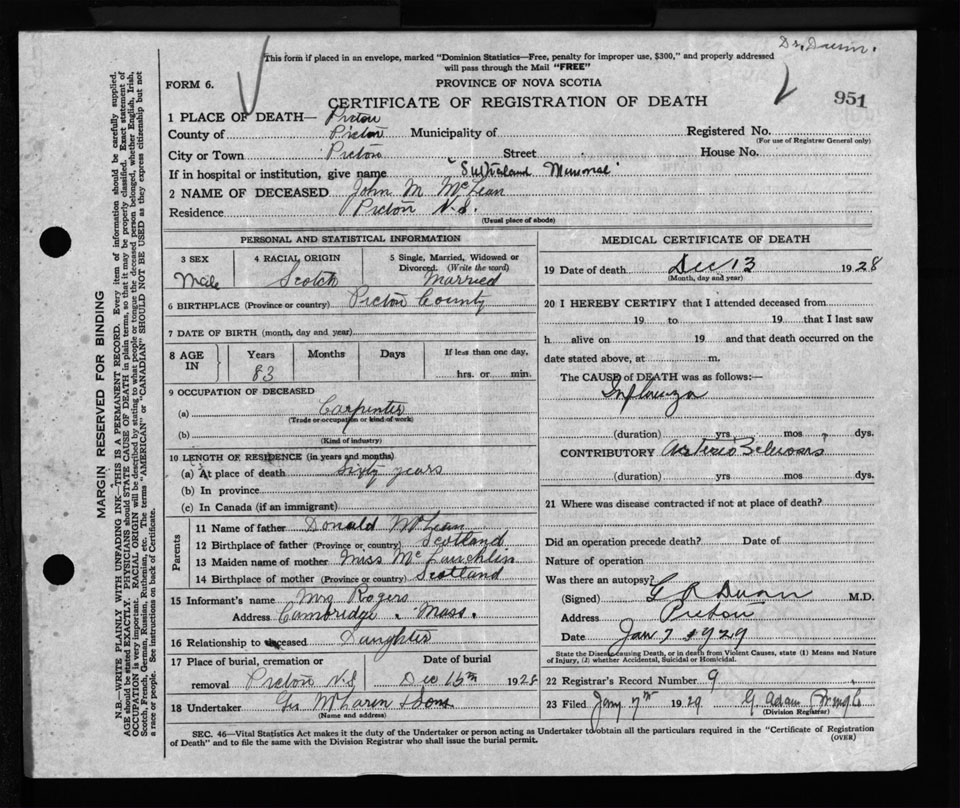 Dr. Dunn.
This form if placed in an envelope, marked "Dominion Statistics—Free, penalty for improper use, $300," and properly addressed
will pass through the Mail "FREE"
FORM 6.
PROVINCE OF NOVA SCOTIA
CERTIFICATE OF REGISTRATION OF DEATH
951
1 PLACE OF DEATH— Pictou
County of Pictou Municipality of Registered No.
(For use of Registrar General only)
City or Town Pictou Street House No.
If in hospital or institution, give name "Sutherland Memorial"
2 NAME OF DECEASED John M McLean
Residence Pictou N.S.
(Usual place of abode)
PERSONAL AND STATISTICAL INFORMATION
3 SEX 4 RACIAL ORIGIN 5 Single, Married, Widowed or
Divorced. (Write the word)
Male Scotch Married
6 BIRTHPLACE (Province or country) Pictou County
7 DATE OF BIRTH (month, day and year)
8 AGE IN Years Months Days If less than one day,
83 hrs. or min.
9 OCCUPATION OF DECEASED
(a) Carpenter
(Trade or occupation or kind of work)
(b)
(Kind of industry)
10 LENGTH OF RESIDENCE (in years and months)
(a) At place of death Sixty years
(b) In province
(c) In Canada (if an immigrant)
Parents
11 Name of father Donald McLean
12 Birthplace of father (Province or country) Scotland
13 Maiden name of mother Miss McLauchlin
14 Birthplace of mother (Province or country) Scotland
15 Informant's name Mrs Rogers
Address Cambridge, Mass.
16 Relationship to deceased Daughter
17 Place of burial, cremation or Date of burial
removal Pictou N.S Dec 15th 1928
18 Undertaker Geo McLaren & Sons
(Name and address)
MEDICAL CERTIFICATE OF DEATH
19 Date of death Dec 13 1928
(Month, day and year)
20 I HEREBY CERTIFY that I attended deceased from
19 to 19 that I last saw
h alive on 19 and that death occurred on the
date stated above, at m.
The CAUSE of DEATH was as follows:—
Influenza
(duration) yrs mos dys.
CONTRIBUTORY Arterio Sclerosis
(duration) yrs mos dys.
21 Where was disease contracted if not at place of death?
Did an operation precede death? Date of
Nature of operation
Was there an autopsy?
(Signed) G R Dunn M.D.
Address Pictou
Date Jan 7 1929
State the Disease causing Death, or in death from Violent Causes, state (1) Means and Nature
of Injury, (2) whether Accidental, Suicidal or Homicidal.
22 Registrar's Record Number 9
23 Filed Jany 7th 1929 G. Adam
(Division Registrar)
SEC. 46—Vital Statistics Act makes it the duty of the Undertaker or person acting as Undertaker to obtain all the particulars required in the "Certificate of Registration
of Death" and to file the same with the Division Registrar who shall issue the burial permit.
(OVER)
MARGIN RESERVED FOR BINDING
N.B.—WRITE PLAINLY WITH UNFADING INK—THIS IS A PERMANENT RECORD. Every item of information should be carefully supplied.
AGE should be stated EXACTLY. PHYSICIANS should STATE CAUSE OF DEATH in plain terms, so that it may be properly classified. Exact statement of
OCCUPATION is very important. RACIAL ORIGIN will be described by stating to what people or tongue the deceased person belonged, whether English, Irish,
Scotch, French, German, Russian, Ruthenian, etc. The terms "AMERICAN" or "CANADIAN" SHOULD NOT BE USED as they express citizenship but not
a race or people. See instructions on back of Certificate.